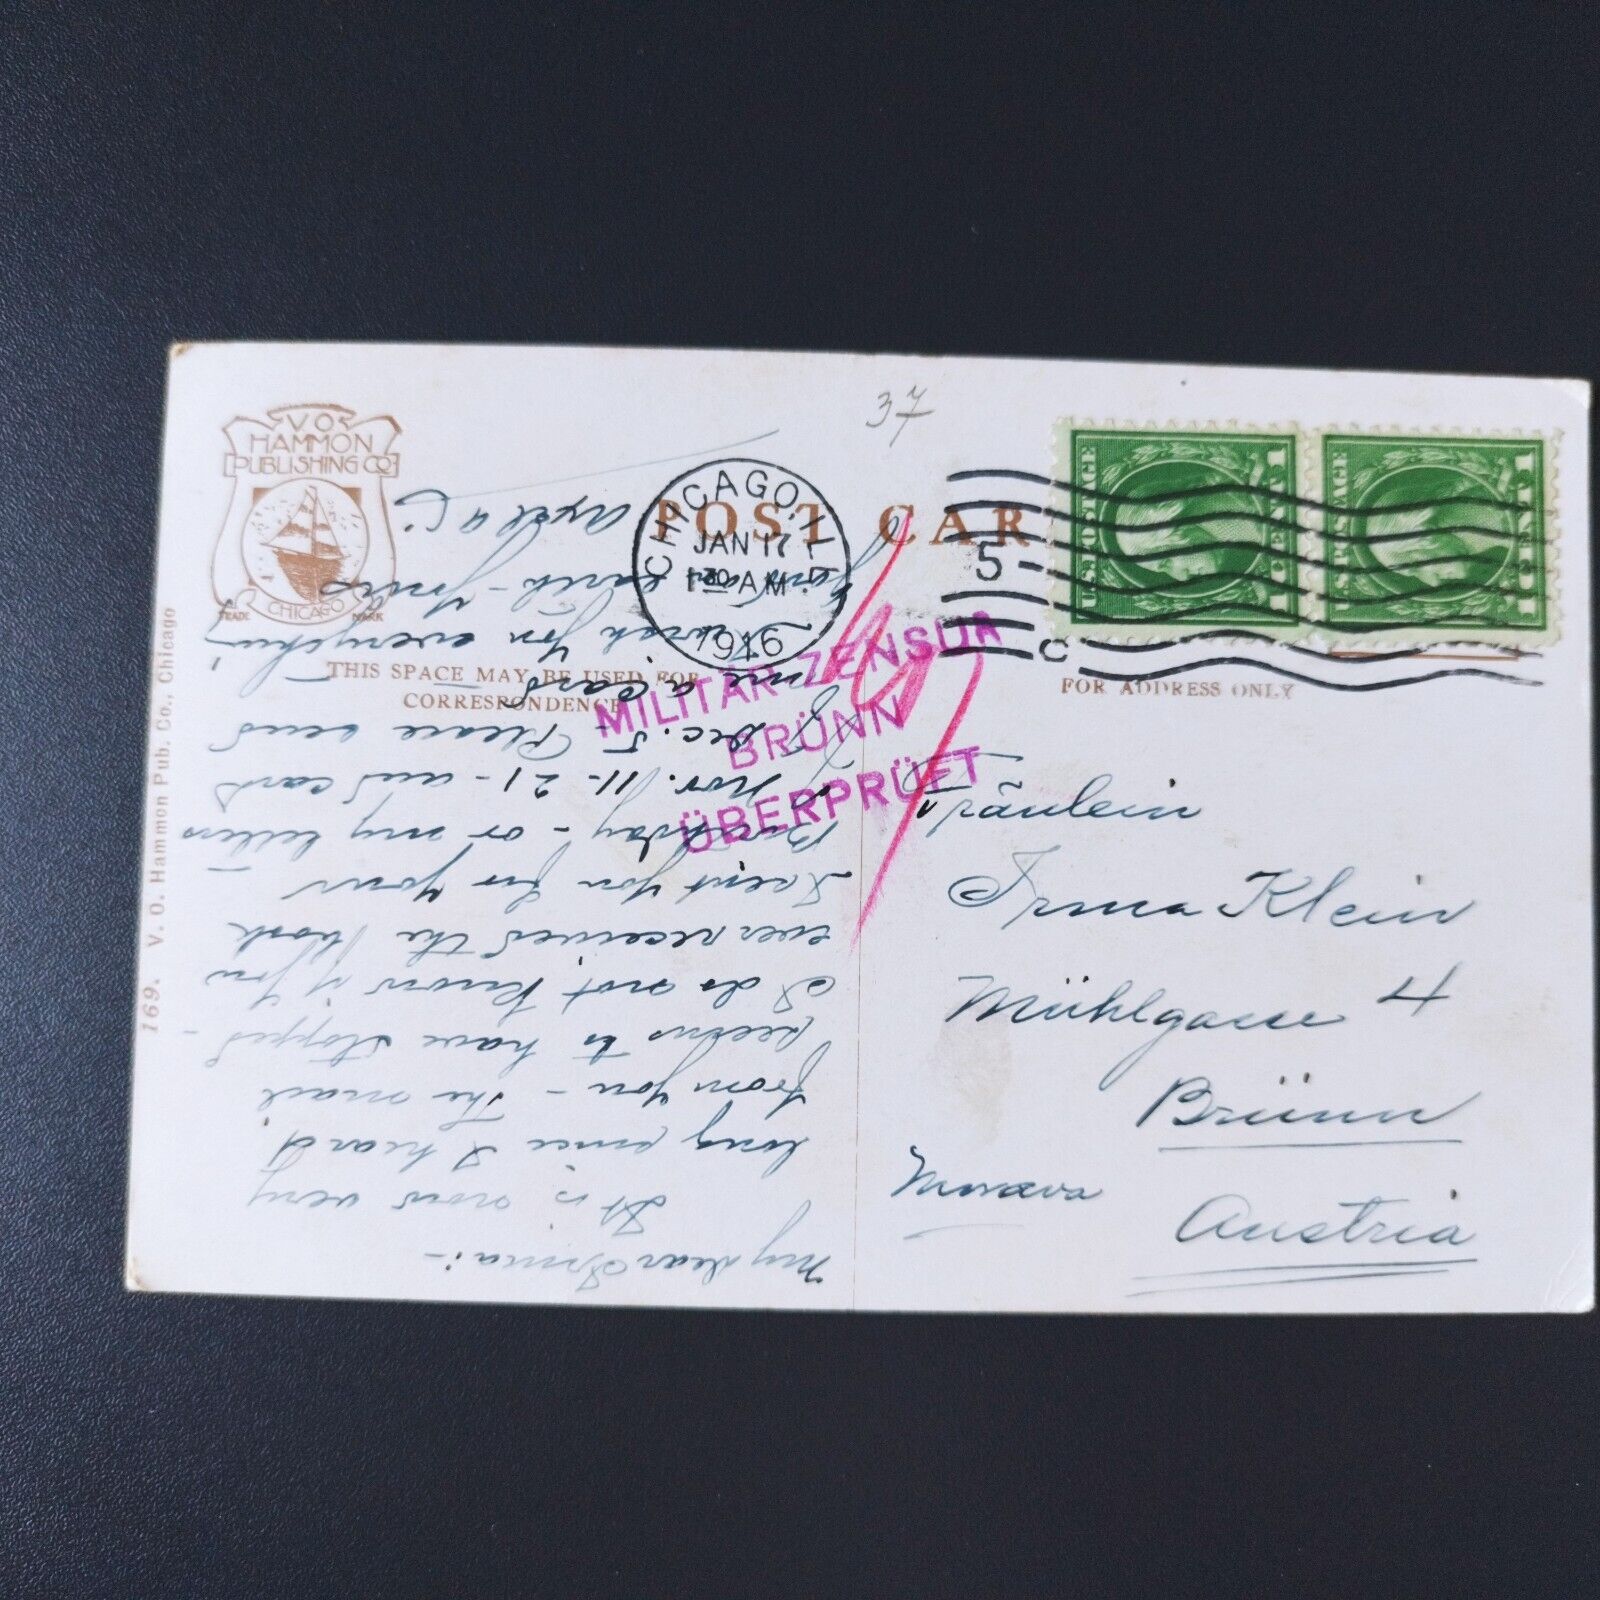 V.O.
HAMMON
PUBLISHING CO.
CHICAGO
TRADE MARK
37
POST CAR
CHICAGO, ILL.
JAN 17
1 30 AM
1916
5
C
U.S. POSTAGE
1 CENT 1
U.S. POSTAGE
1 CENT 1
THIS SPACE MAY BE USED FOR
CORRESPONDENCE
FOR ADDRESS ONLY
MILITÄR-ZENSUR
BRÜNN
ÜBERPRÜFT
169. V. O. Hammon Pub. Co., Chicago
My dear Irma:-
It is now very
long since I heard
from you - The mail
seems to have stopped -
I do not know if you
ever received the book
I sent you for your
Birthday - or my letters -
of Nov. 11 - 21 - and card
of Dec. 5 - Please send
me a card
I wish you everything
on earth - Yours
Fräulein
Irma Klein
Mühlgasse 4
Brünn
Morava
Austria